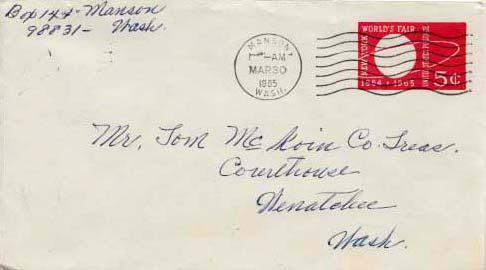 Box 144 - Manson
98831 - Wash.
MANSON
AM
MAR 30
1965
WASH.
NEW YORK WORLD'S FAIR
1964 · 1965
5¢
Mr. Tom McKoin Co. Treas.
Courthouse
Wenatchee
Wash.